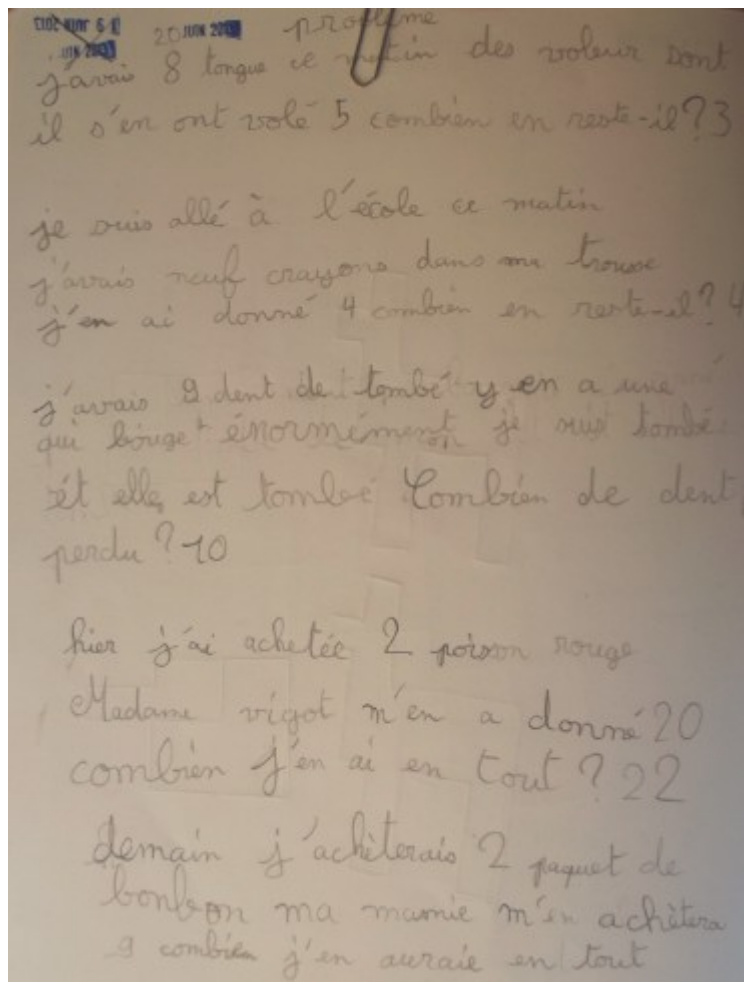 20 JUIN 2013 problème
j'avais 8 tongue ce matin des voleur sont
il s'en ont volé 5 combien en reste-il? 3
je suis allé à l'école ce matin
j'avais neuf crayons dans ma trousse
j'en ai donné 4 combien en reste-il? 4
j'avais 9 dent de tombé y en a une
qui bouge énormément je suis tombé
ét elle est tombée Combien de dent
perdu? 10
hier j'ai achetée 2 poison rouge
Madame vigot m'en a donné 20
combien j'en ai en tout? 22
demain j'achèterais 2 paquet de
bonbon ma mamie m'en achètera
9 combien j'en auraie en tout